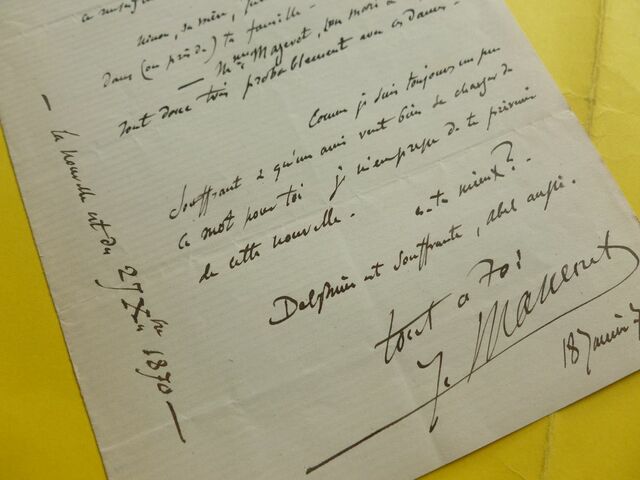 a
Ninon, sa mère,
Dans (ou près de) ta famille -
- Mme Mazerot, son mari
sont donc très probablement avec ces dames. -
Comme je suis toujours un peu
souffrant & qu'un ami veut bien se charger de
ce mot pour toi je m'empresse de te prévenir
de cette nouvelle. es-tu mieux? -
Delphine est souffrante, abel aussi.
tout a toi
J. Mazerot
18 Janvier 7
- la nouvelle est du 27 Xbre 1870 -